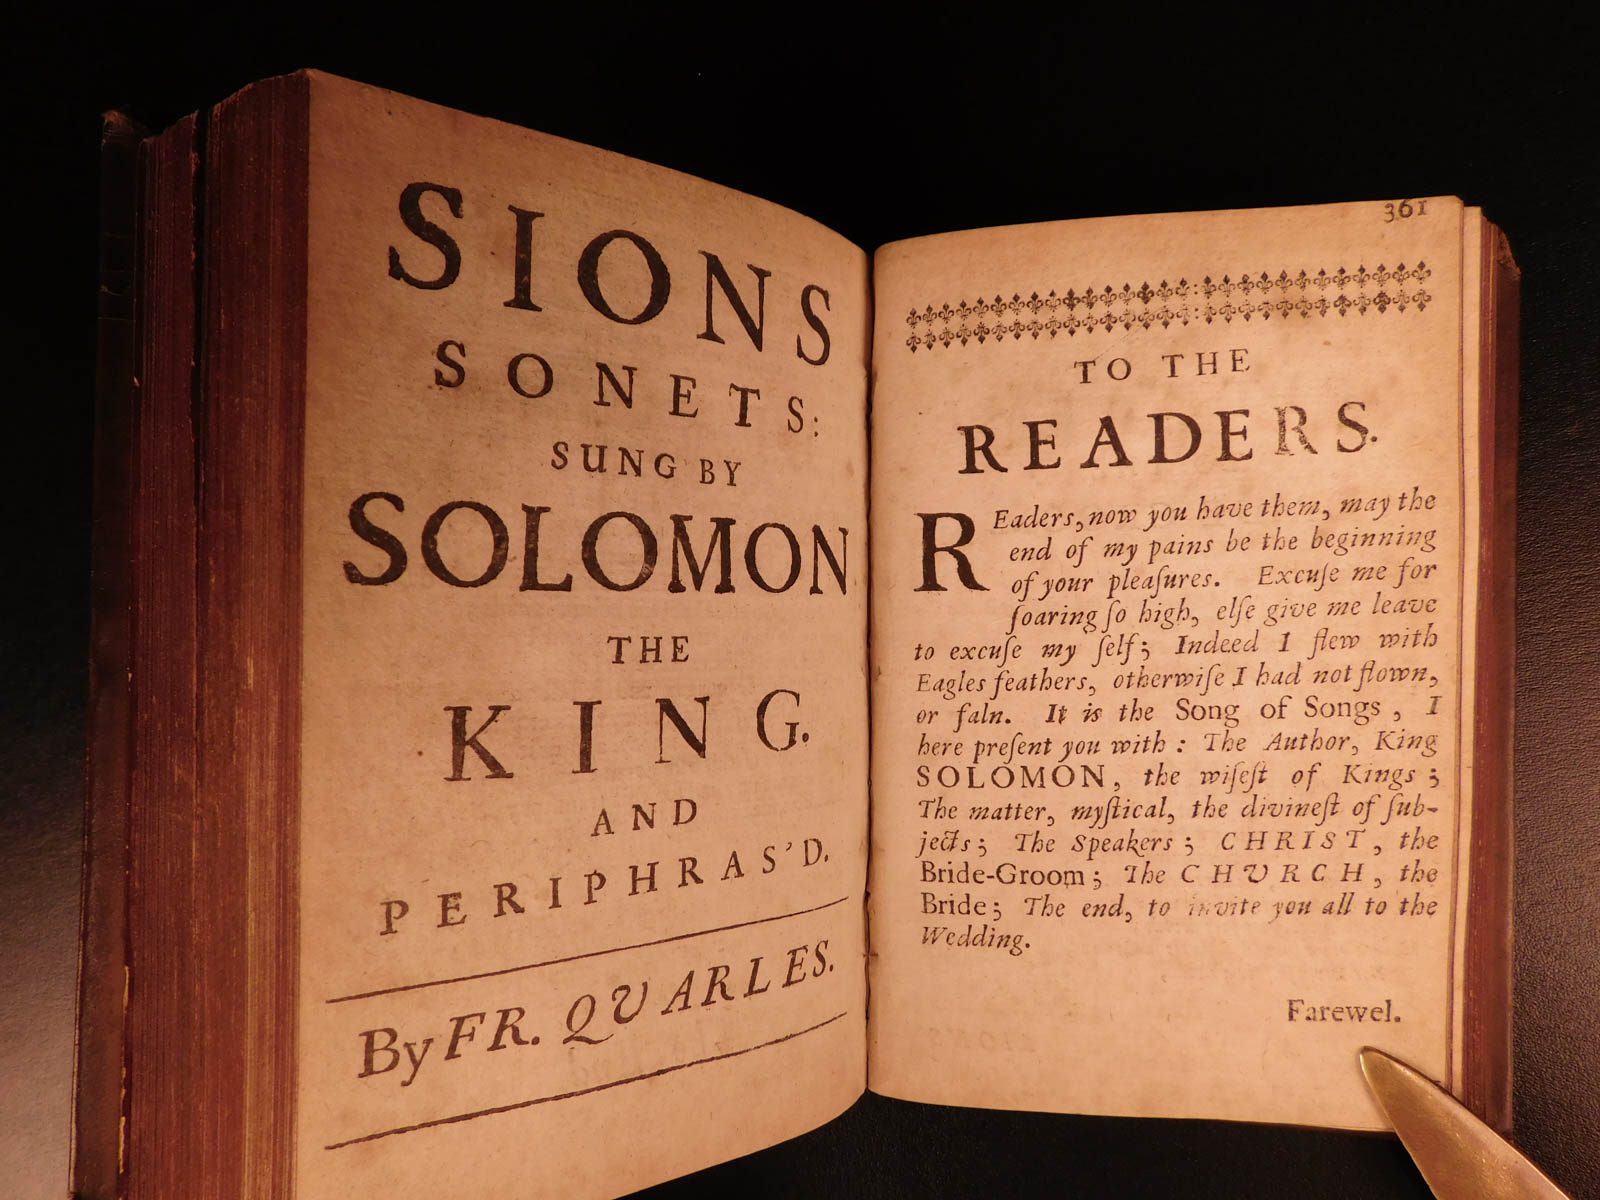 SIONS
SONETS:
SUNG BY
SOLOMON
THE
KING.
AND
PERIPHRAS'D.
By FR. QUARLES.
361
TO THE
READERS.
REaders, now you have them, may the
end of my pains be the beginning
of your pleaſures. Excuſe me for
ſoaring ſo high, elſe give me leave
to excuſe my ſelf; Indeed I flew with
Eagles feathers, otherwiſe I had not flown,
or faln. It is the Song of Songs, I
here preſent you with: The Author, King
SOLOMON, the wiſeſt of Kings;
The matter, myſtical, the divineſt of ſub-
jects; The Speakers; CHRIST, the
Bride-Groom; The CHURCH, the
Bride; The end, to invite you all to the
Wedding.
Farewel.